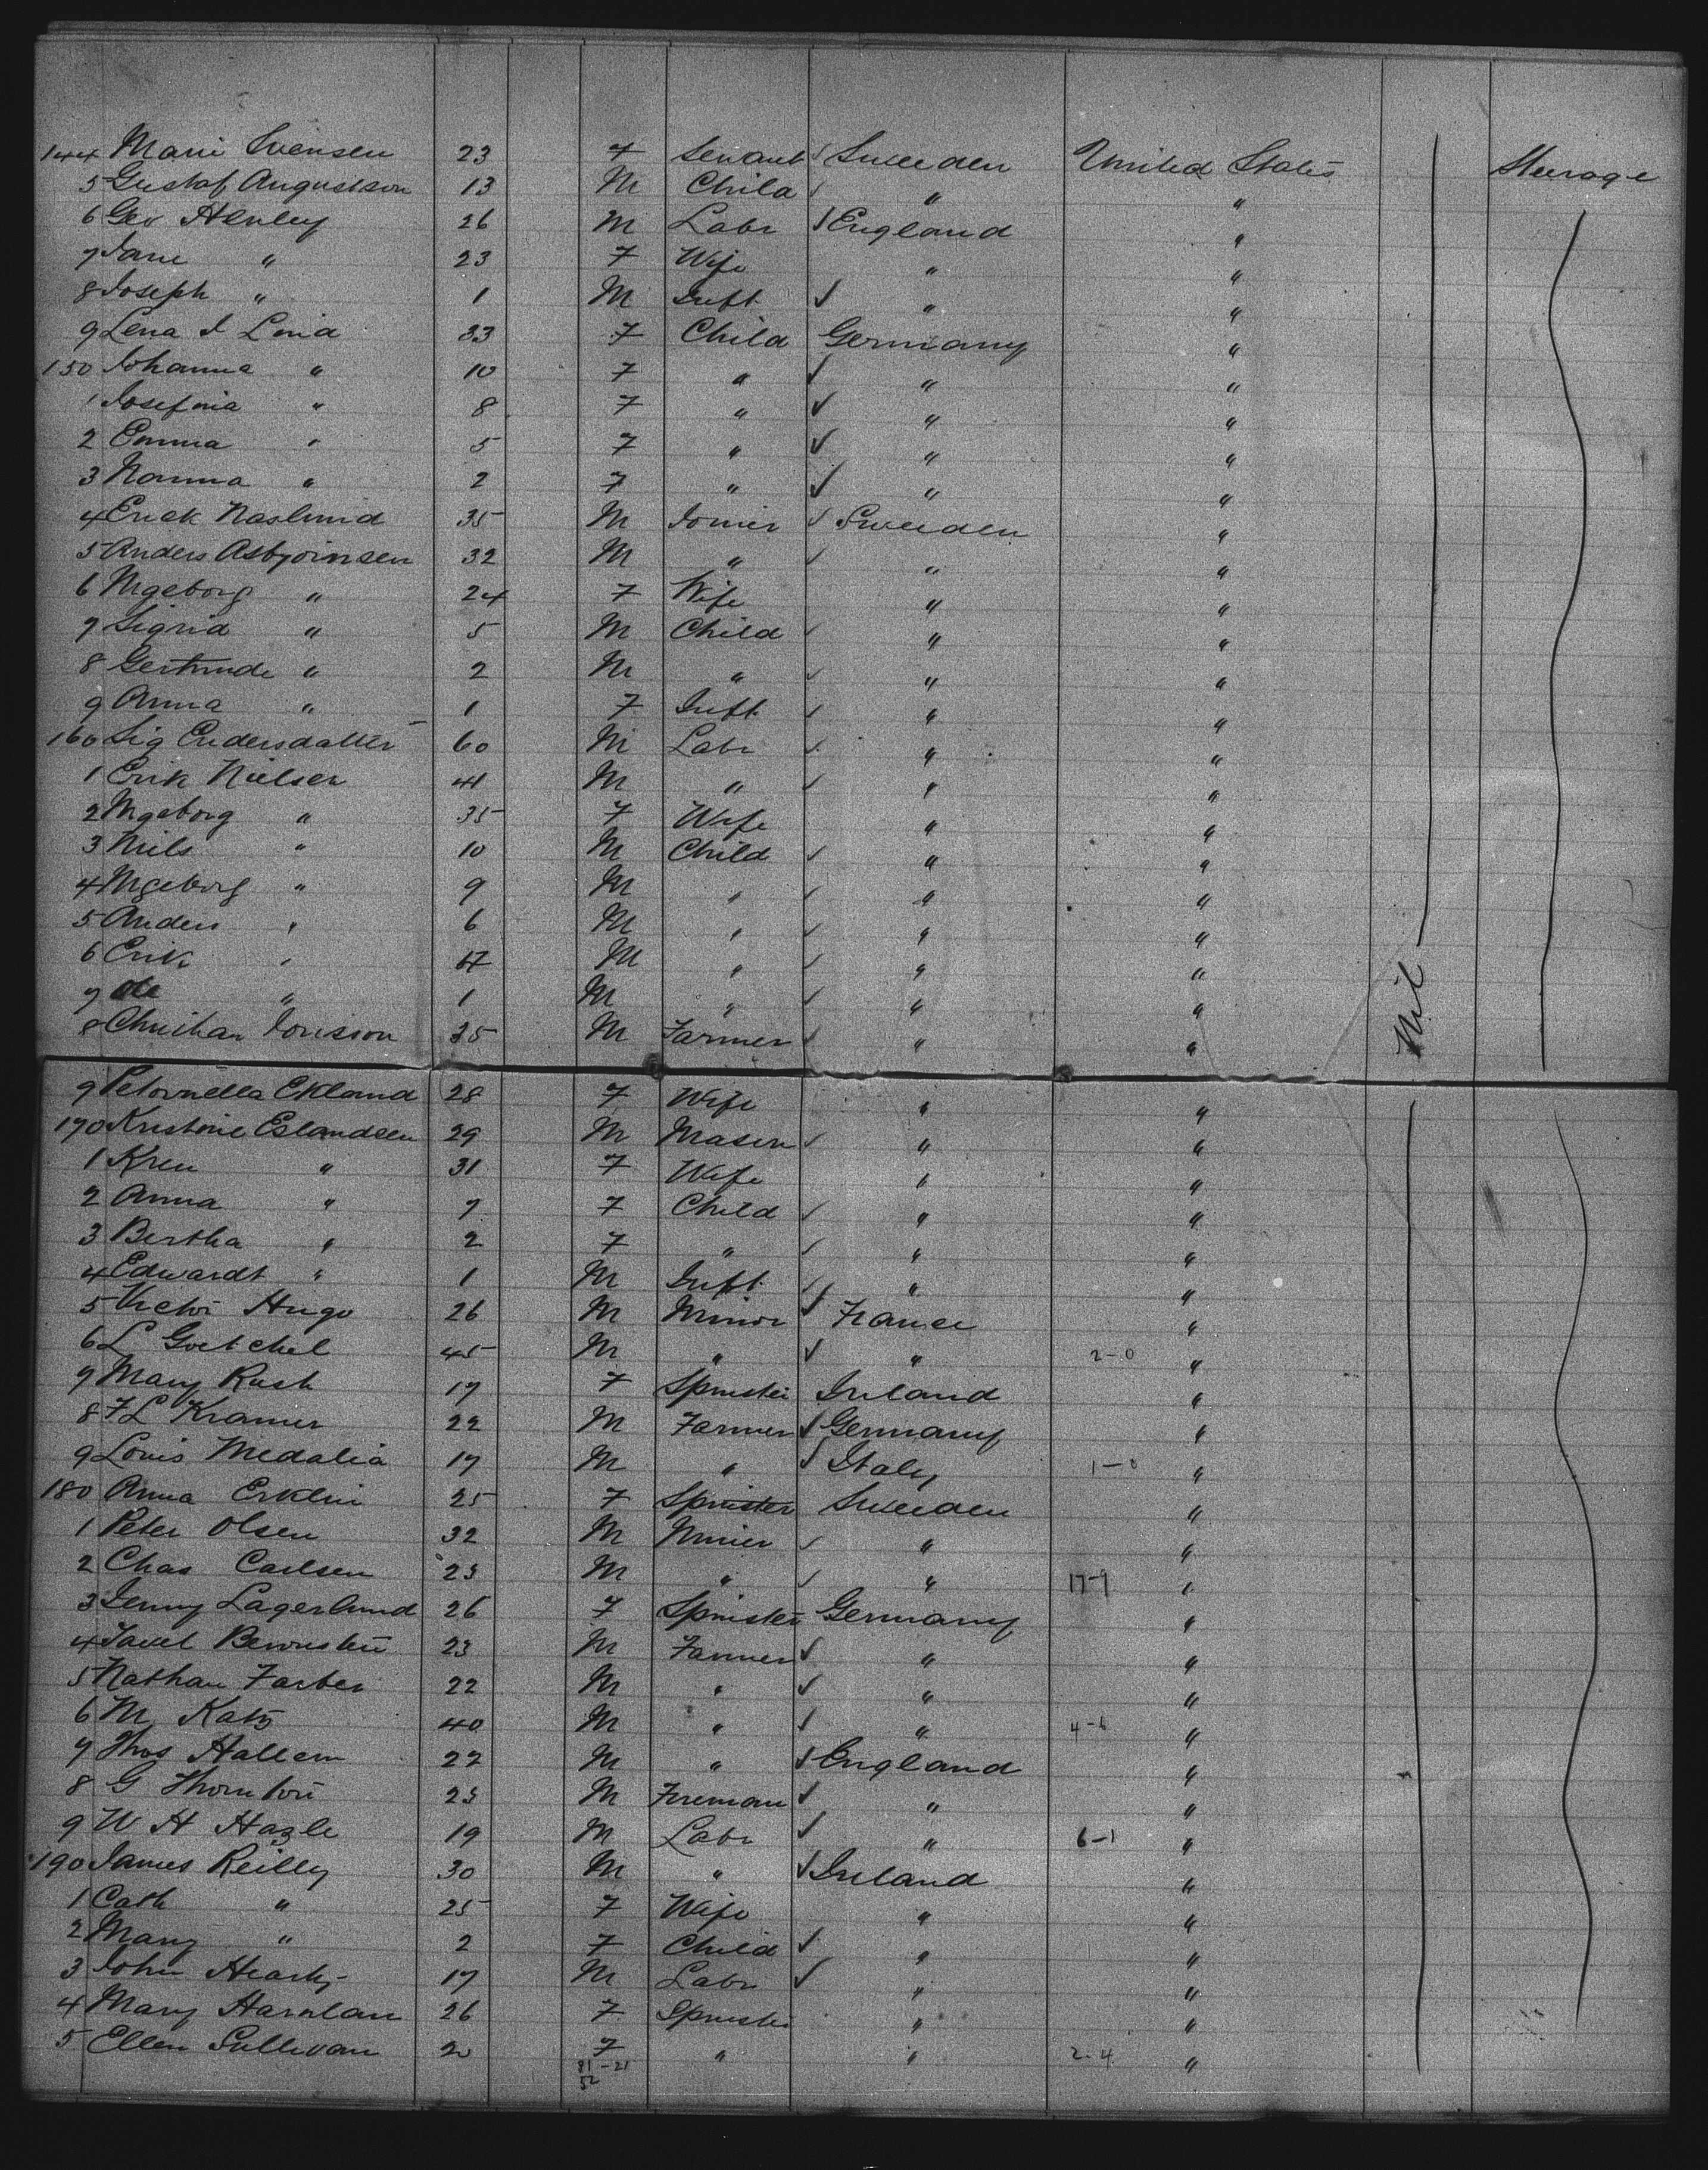 144 Marie Svensen 23 F Servant ✓ Sweden United States Steerage
5 Gustaf Augustson 13 M Child ✓ " "
6 Geo Henley 26 M Labr ✓ England "
7 Jane " 23 F Wife " "
8 Joseph " 1 M Inft ✓ " "
9 Lena I Lind 33 F Child Germany "
150 Johanna " 10 F " ✓ " "
1 Josefina " 8 F " ✓ " "
2 Emma " 5 F " ✓ " "
3 Nanna " 2 F " ✓ " "
4 Erick Naslund 35 M Joiner ✓ Sweden "
5 Anders Asbjoinsen 32 M " ✓ " "
6 Ingeborg " 24 F Wife " "
7 Sigrid " 5 M Child ✓ " "
8 Gertrude " 2 M " ✓ " "
9 Anna " 1 F Inft ✓ " "
160 Sig Endersdatter 60 M Labr ✓ " "
1 Erik Nielsen 41 M " ✓ " "
2 Ingeborg " 35 F Wife " "
3 Niels " 10 M Child ✓ " "
4 Ingeborg " 9 M " ✓ " "
5 Anders " 6 M " ✓ " "
6 Erik " M " ✓ " "
7 Ole " 1 M " ✓ " " Nil
8 Christian Jonsson 25 M Farmer ✓ " "
9 Petornella Eklund 28 F Wife " "
170 Kristine Eslandsen 29 M Mason ✓ " "
1 Kren " 31 F Wife " "
2 Anna " 7 F Child ✓ " "
3 Bertha " 2 F " ✓ " "
4 Edwardt " 1 M Inft ✓ " "
5 Victor Hugo 26 M Minor ✓ France "
6 L Goetchel 45 M " ✓ " 2-0 "
7 Mary Rush 17 F Spinster Ireland "
8 F L Kramer 22 M Farmer ✓ Germany "
9 Louis Medalia 17 M " ✓ Italy 1-0 "
180 Anna Erklin 25 F Spinster Sweden "
1 Peter Olsen 32 M Minier ✓ " "
2 Chas Carlsen 23 M " ✓ " 17-9 "
3 Jenny Lagerlund 26 F Spinster Germany "
4 Jakel Bernstein 23 M Farmer ✓ " "
5 Nathan Farber 22 M " ✓ " "
6 M Katz 40 M " ✓ " 4-6 "
7 Thos Hallem 22 M " ✓ England "
8 G Thornton 23 M Fireman ✓ " "
9 W H Hazle 19 M Labr ✓ " 6-1 "
190 James Reilly 30 M " ✓ Ireland "
1 Cath " 25 F Wife " "
2 Mary " 2 F Child ✓ " "
3 John Hearty 17 M Labr ✓ " "
4 Mary Hanlan 26 F Spinster " "
5 Ellen Sullivan 20 F " " 2-4 "
81-21
52